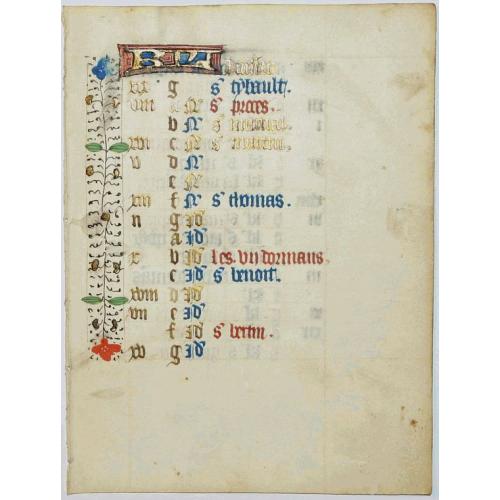 KL
xix g s' tybault.
viii N' s' pieres.
b N' s'
xvi c N' s' martin.
v d N'
e N'
xiii f N' s' thomas.
ii g Id'
a Id'
x b Id' les vii dormans.
c Id' s' benoit.
xviii d Id'
vii e Id'
f Id' s' bertin.
xv g Id'